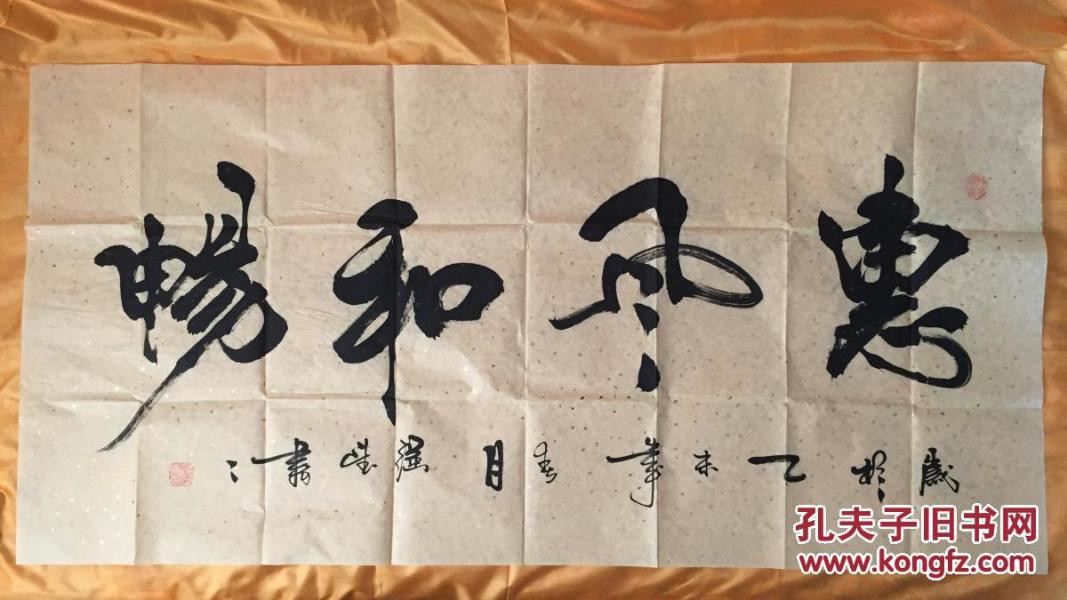 惠风和畅
岁于乙未年春月 书
孔夫子旧书网
www.kongfz.com